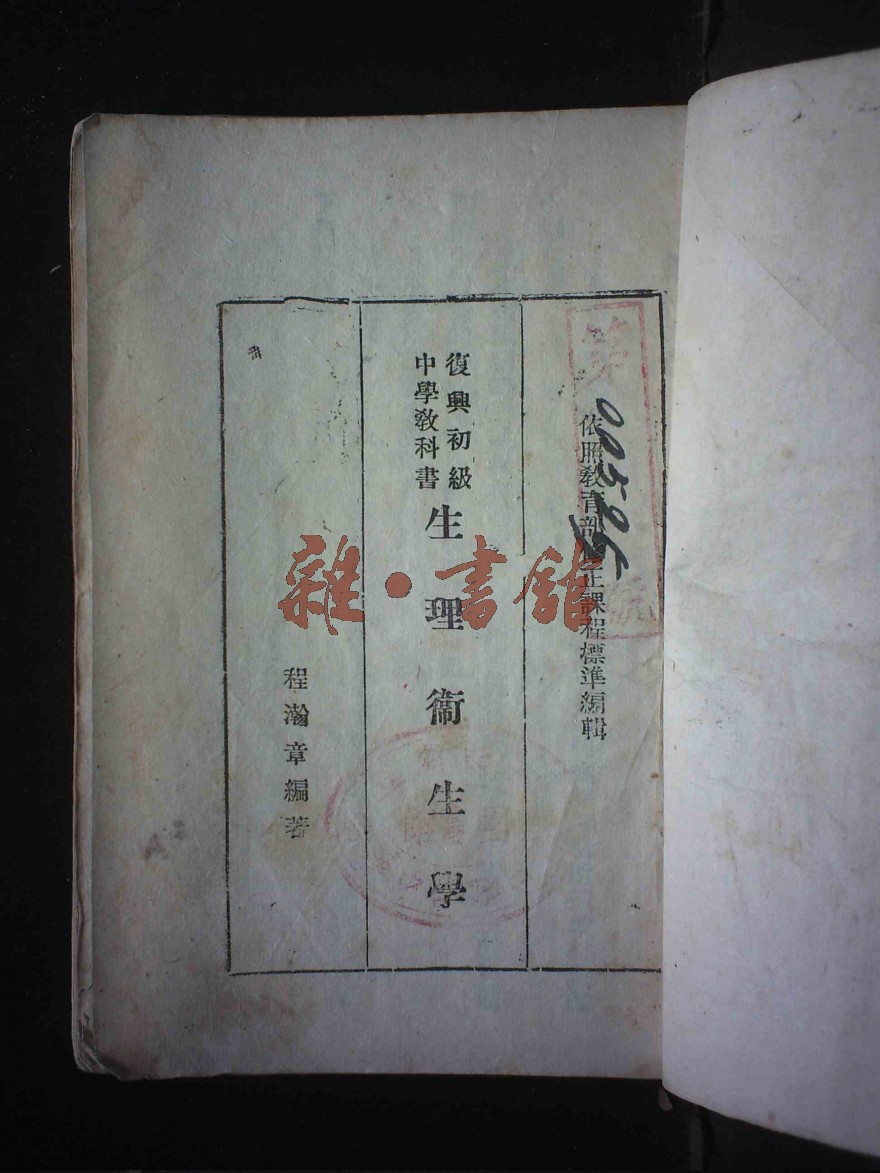 依照教育部修正課程標準編輯
復興初級
中學教科書
生理衞生學
程瀚章編著
第
號
雜·書館